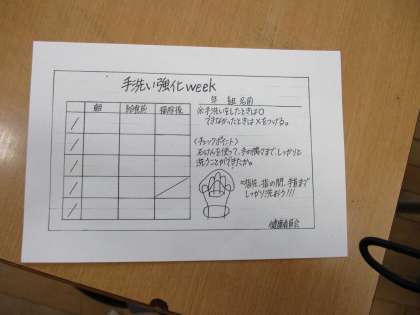 手洗い強化week
年 組 名前
朝 給食前 掃除後
※手洗いをしたときは○
できなかったときは×をつける。
〈チェックポイント〉
石けんを使って、手の隅々まで、しっかりと
洗うことができたか。
※指先、指の間、手首まで
しっかり洗おう!!!
保健委員会